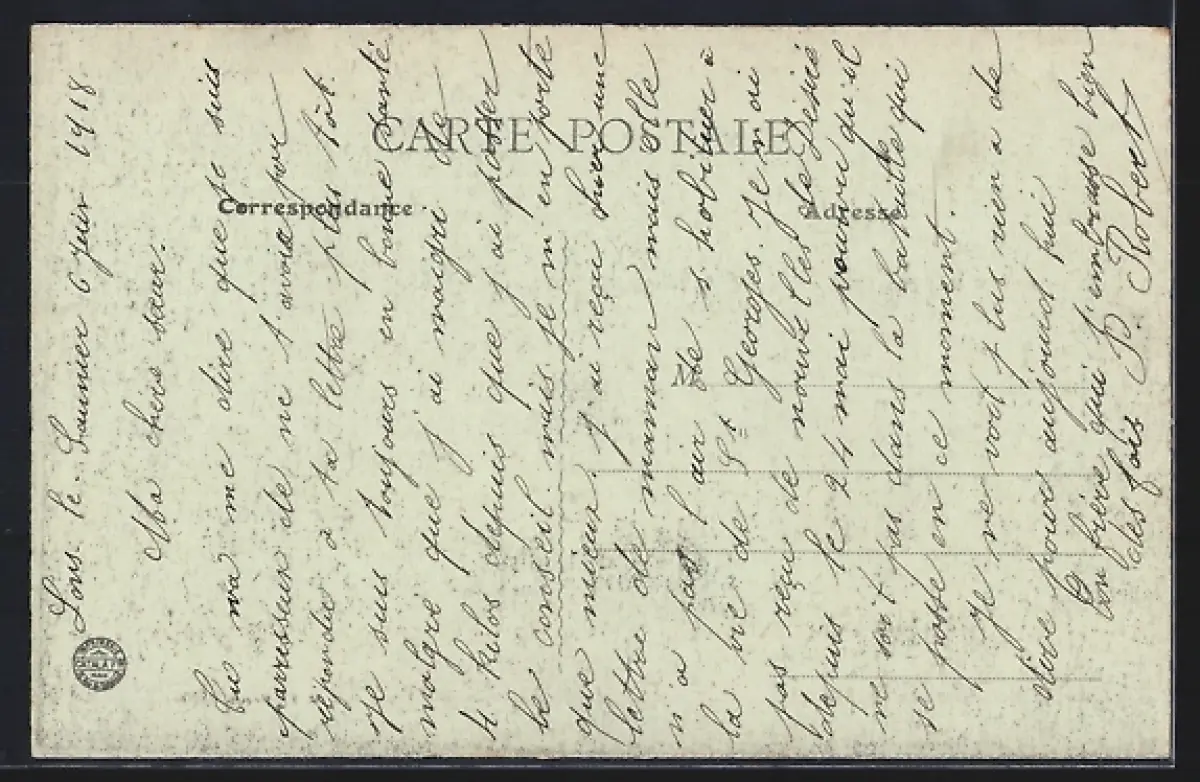 CARTE POSTALE
Correspondance
Adresse
M
Lons. le. Saunier 6 Juin 1918
Ma chère sœur.
Tu va me dire que je suis
parresseux de ne t'avoir pas
répondu à ta lettre plus tôt.
Je suis toujours en bone santé
malgré que j'ai maigri de
4 kilos depuis que j'ai passer
le conseil. mais je m'en porte
que mieux j'ai reçu hier une
lettre de maman mais elle
n'a pas l'air de s'habituer à
la vie de St Georges. Je n'ai
pas reçu de nouvelles de Désiré
depuis le 24 mai pourvu qu'il
ne soit pas dans la bataille qui
se passe en ce moment.
Je ne voit plus rien a de
dire pours aujourd hui
Ton frère qui t'embrasse bien
des fois P. Robert